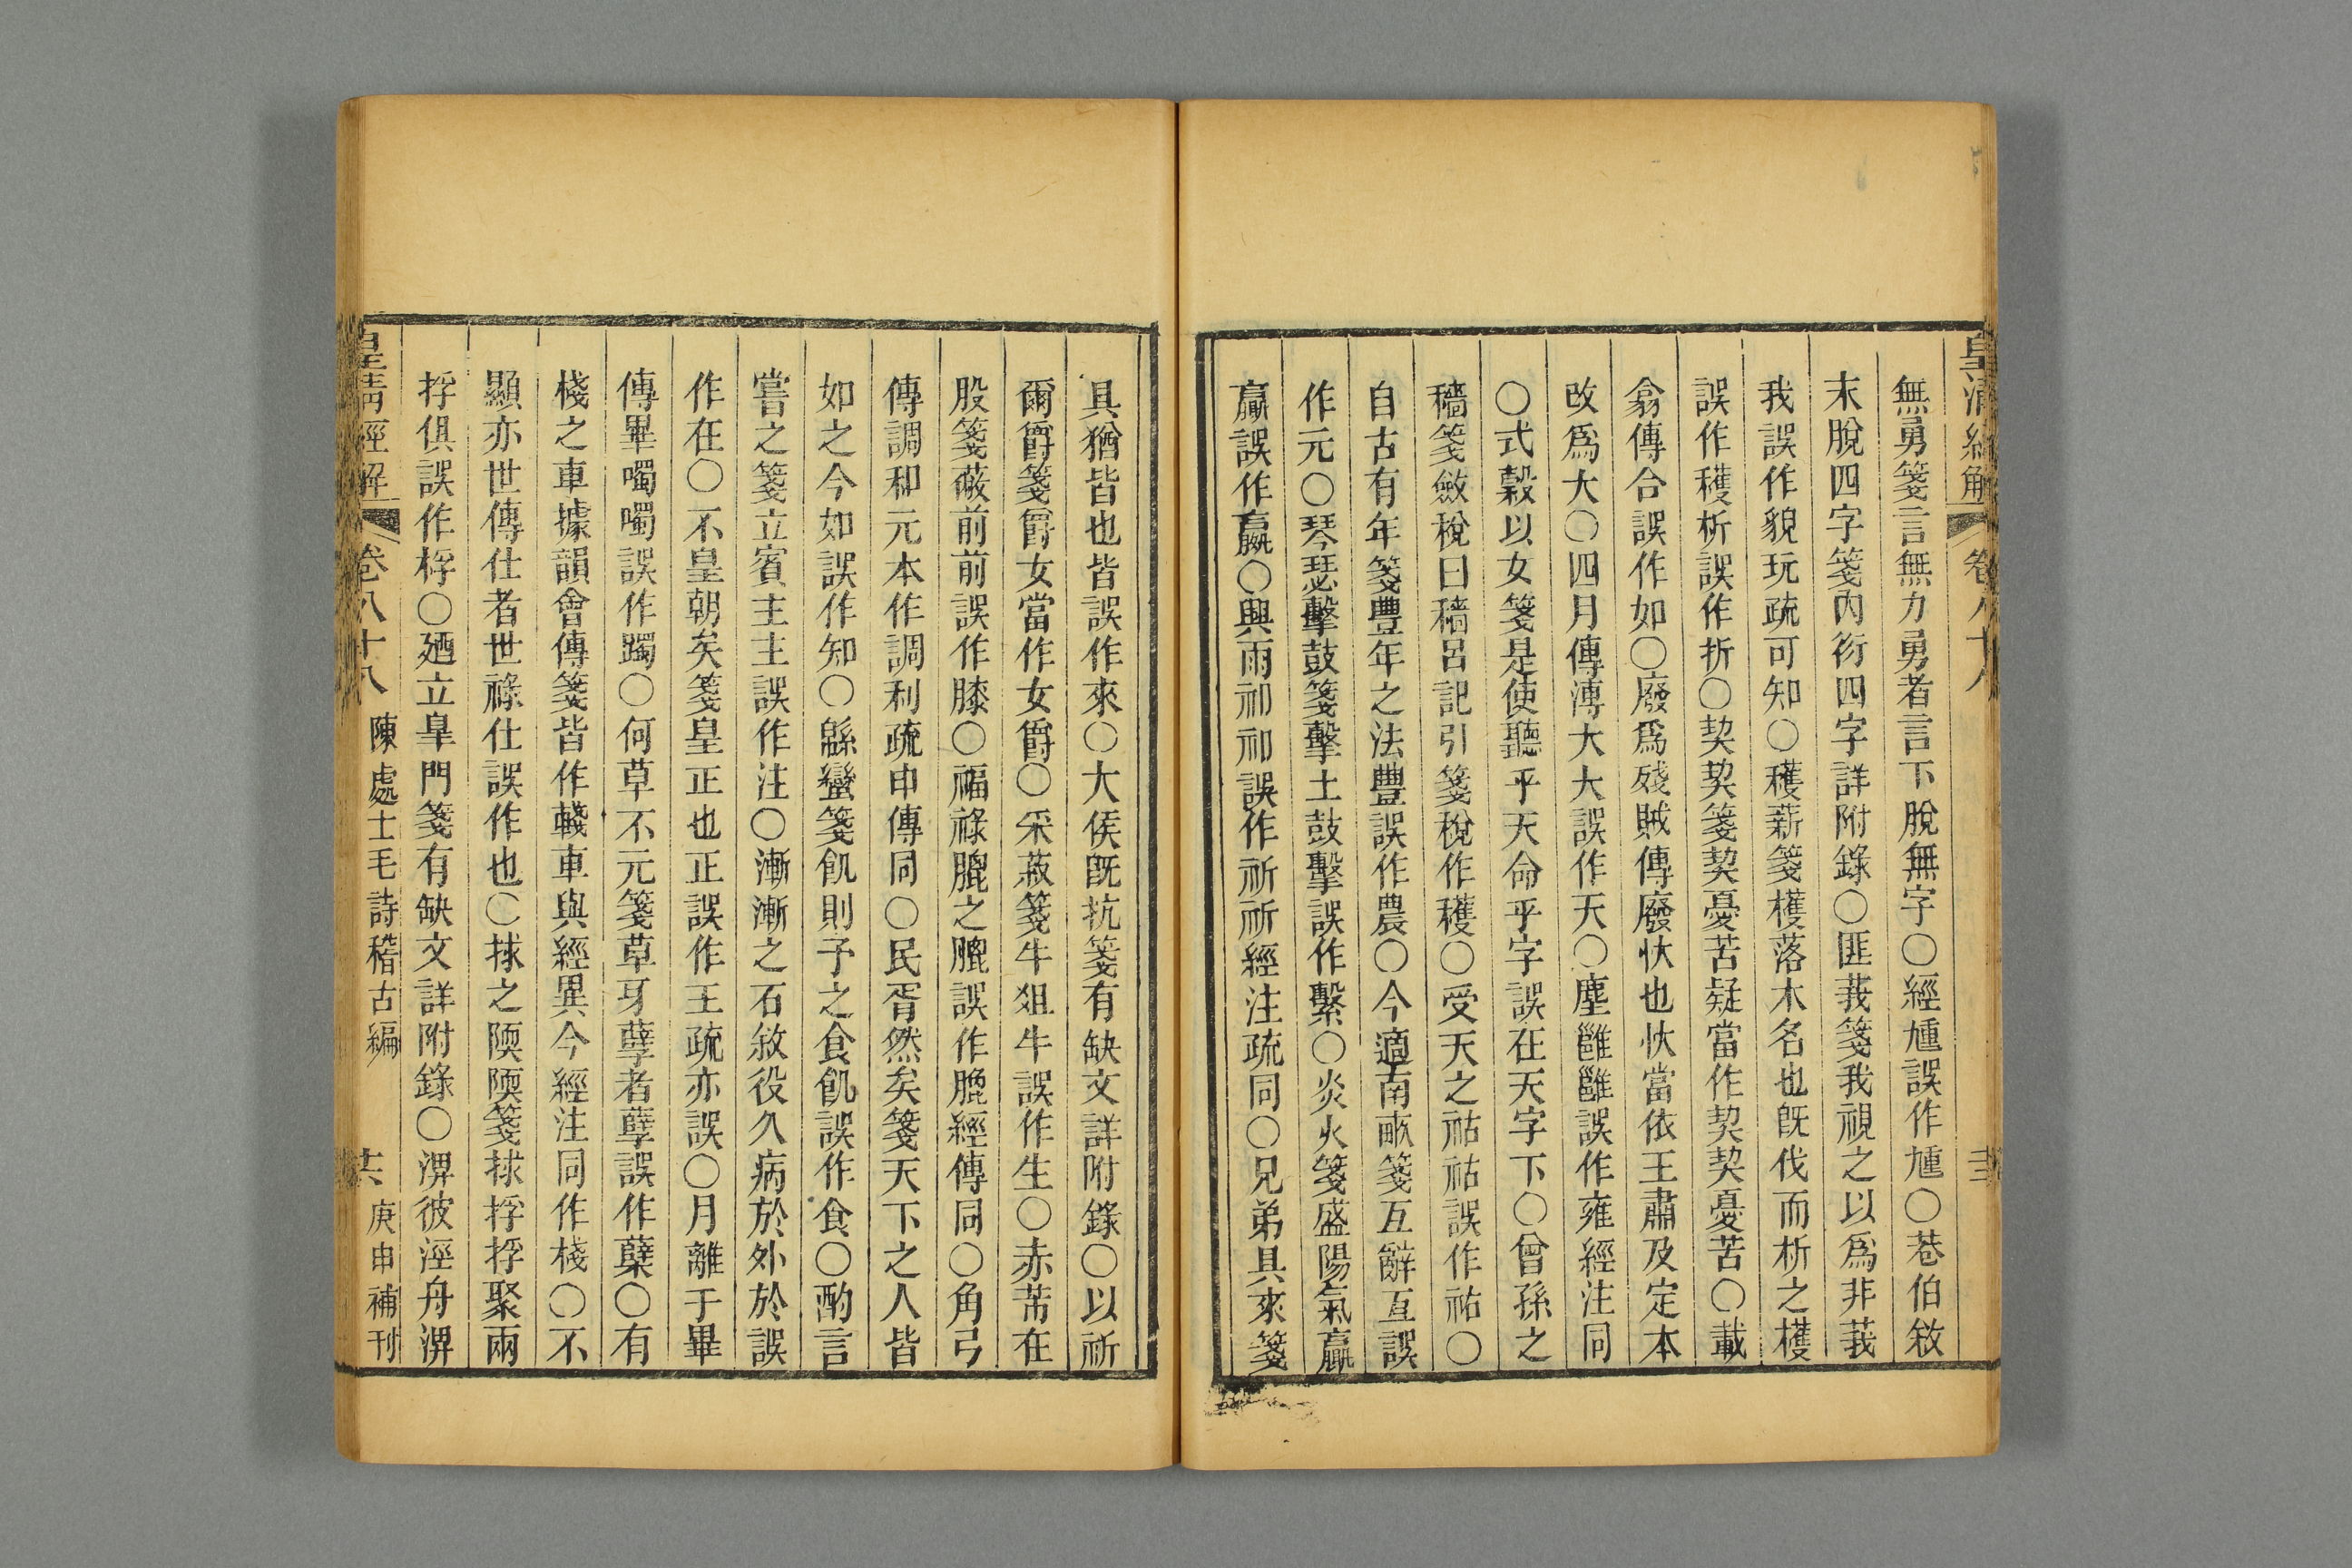 皇清經解 卷八十八
無勇箋言無力勇者言下脫無字○經尰誤作尰○巷伯敘
末脫四字箋內衍四字詳附錄○匪莪箋我視之以爲非莪
我誤作貌玩疏可知○穫薪箋檴落木名也旣伐而析之檴
誤作穫析誤作折○契契箋契憂苦疑當作契契憂苦○載
翕傳合誤作如○廢爲殘賊傳廢忕也忕當依王肅及定本
改爲大○四月傳溥大大誤作天○塵雝雝誤作雍經注同
○式穀以女箋是使聽乎天命乎字誤在天字下○曾孫之
穡箋斂稅曰穡呂記引箋稅作穫○受天之祜祜誤作祐○
自古有年箋豐年之法豐誤作農○今適南畝箋互辭互誤
作元○琴瑟擊鼓箋擊土鼓擊誤作繫○炎火箋盛陽氣贏
贏誤作嬴○興雨祁祁誤作祈祈經注疏同○兄弟具來箋
具猶皆也皆誤作來○大侯旣抗箋有缺文詳附錄○以祈
爾爵箋爵女當作女爵○采菽箋牛俎牛誤作生○赤芾在
股箋蔽前前誤作膝○福祿膍之膍誤作膍經傳同○角弓
傳調和元本作調利疏申傳同○民胥然矣箋天下之人皆
如之今如誤作知○緜蠻箋飢則予之食飢誤作食○酌言
嘗之箋立賓主主誤作注○漸漸之石敘役久病於外於誤
作在○不皇朝矣箋皇正也正誤作王疏亦誤○月離于畢
傳畢噣噣誤作躅○何草不元箋草牙孽者孽誤作櫱○有
棧之車據韻會傳箋皆作輚車與經異今經注同作棧○不
顯亦世傳仕者世祿仕誤作也○捄之陾陾箋捄捊捊聚兩
捊俱誤作桴○廼立皐門箋有缺文詳附錄○淠彼涇舟淠
皇清經解 卷八十八 陳處士毛詩稽古編 十六 庚申補刊